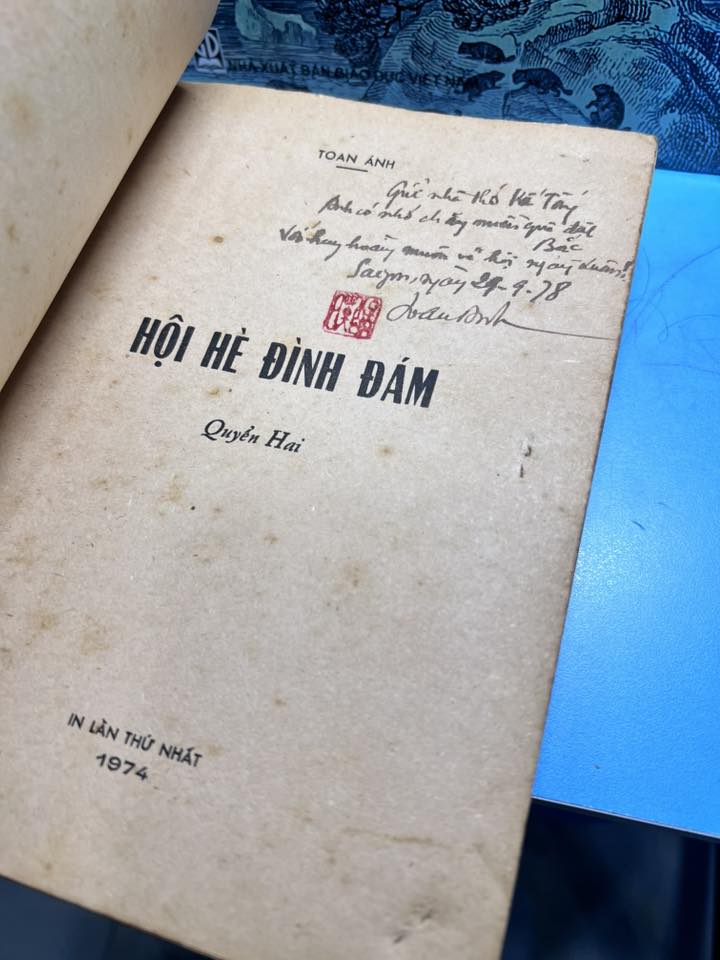 NHÀ XUẤT BẢN GIÁO DỤC VIỆT NAM
TOAN ÁNH
Gửi nhà thơ
Anh có nhớ chăng miền quê đất
Bắc
muốn về hội ngày xuân
Saigon, ngày 29-9-78
Toan Ánh
HỘI HÈ ĐÌNH ĐÁM
Quyển Hai
IN LẦN THỨ NHẤT
1974